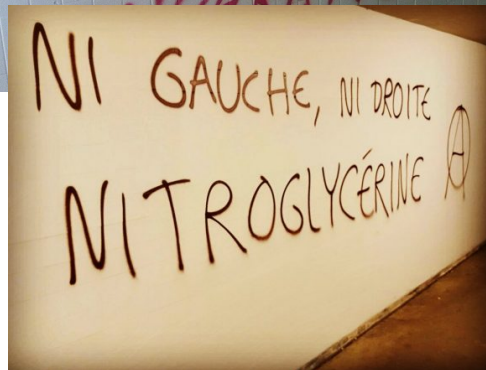 NI GAUCHE, NI DROITE
NITROGLYCÉRINE Ⓐ